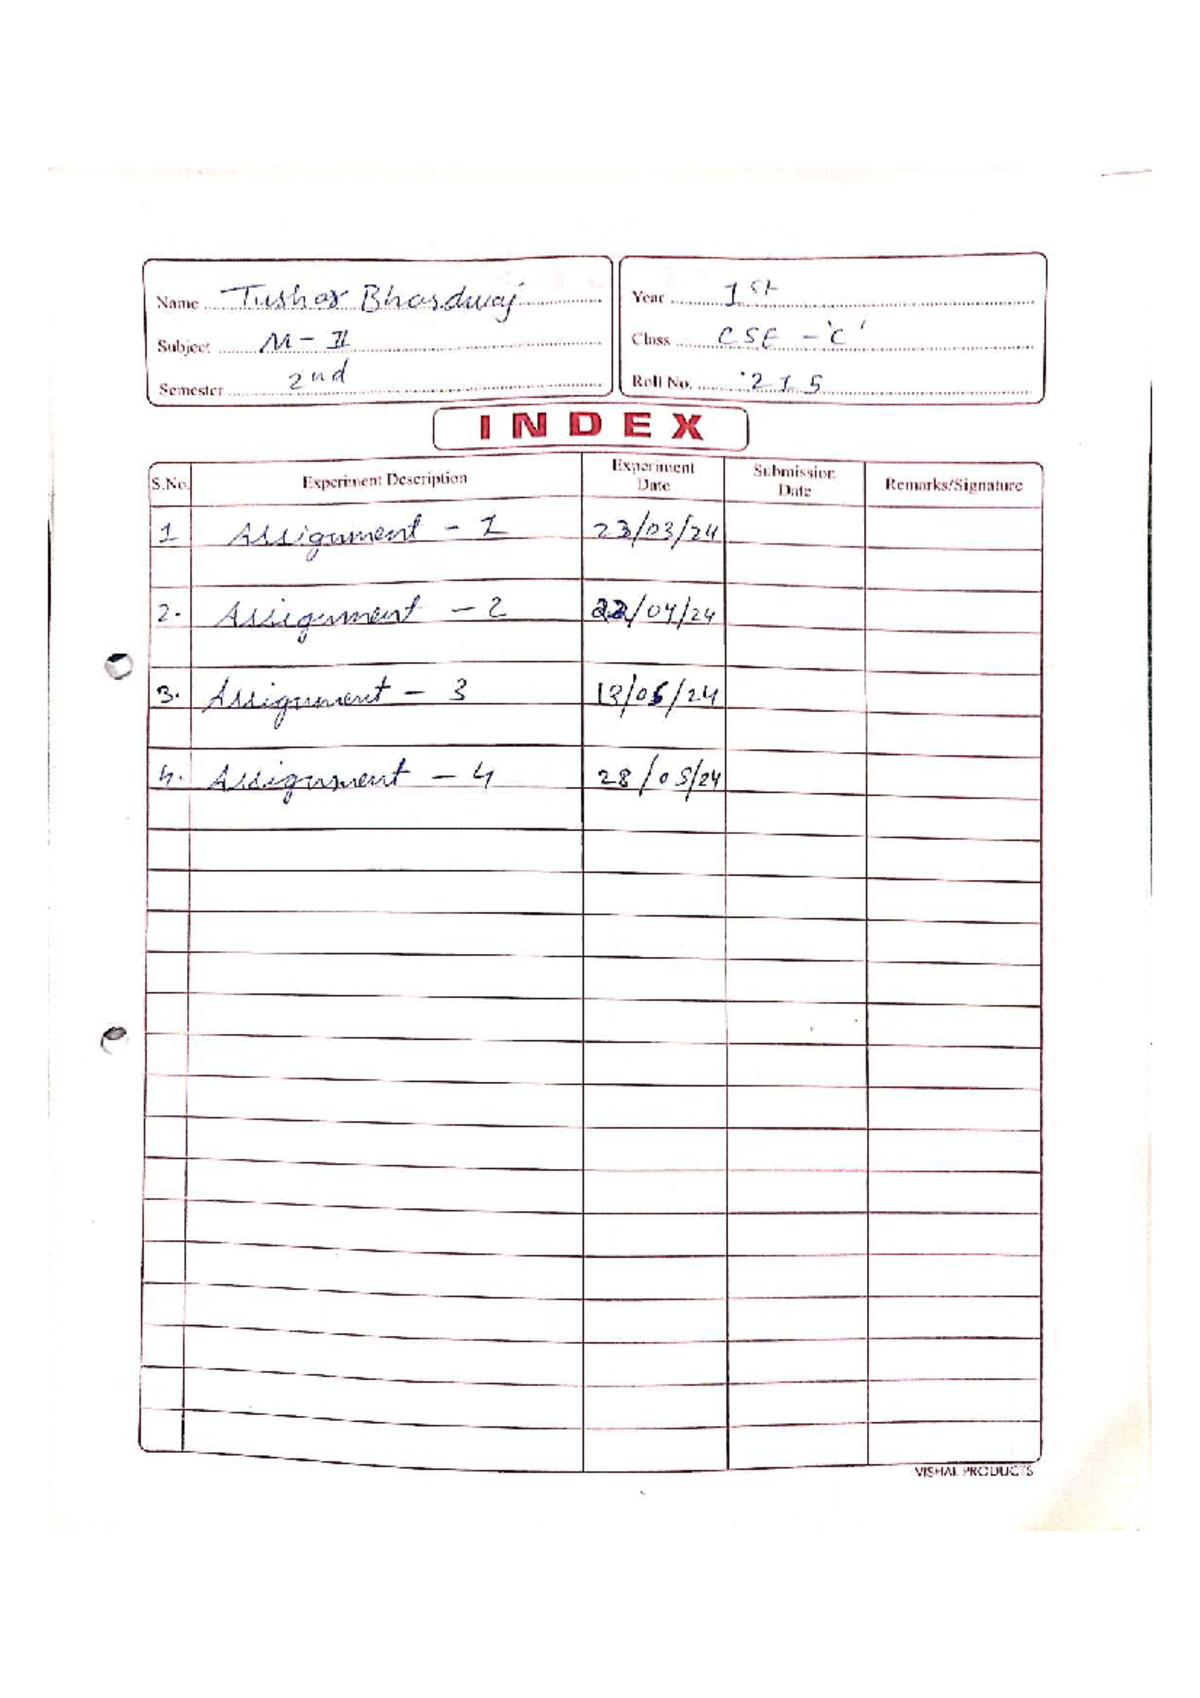 Name Tushar Bhardwaj
Subject M - II
Semester 2nd
Year 1st
Class CSE - 'C'
Roll No. 215
INDEX
S.No. Experiment Description Experiment Date Submission Date Remarks/Signature
1 Assignment - 1 23/03/24
2. Assignment - 2 22/04/24
3. Assignment - 3 /24
4. Assignment - 4 28/05/24
VISHAL PRODUCTS